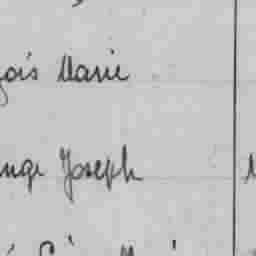 çois Marie
nge Joseph